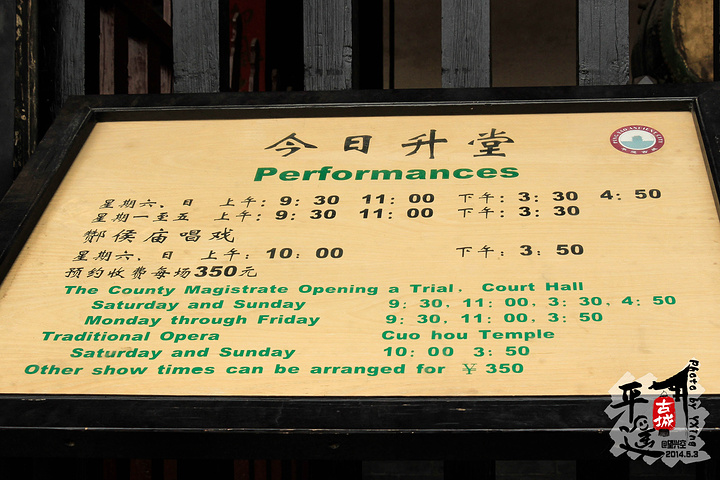 今日升堂
Performances
星期六、日 上午：9：30 11：00 下午：3：30 4：50
星期一至五 上午：9：30 11：00 下午：3：30
酂侯庙唱戏
星期六、日 上午：10：00 下午：3：50
预约收费每场350元
The County Magistrate Opening a Trial. Court Hall
Saturday and Sunday 9：30，11：00，3：30，4：50
Monday through Friday 9：30，11：00，3：50
Traditional Opera Cuo hou Temple
Saturday and Sunday 10：00 3：50
Other show times can be arranged for ￥350
平遥
古城
2014.5.3